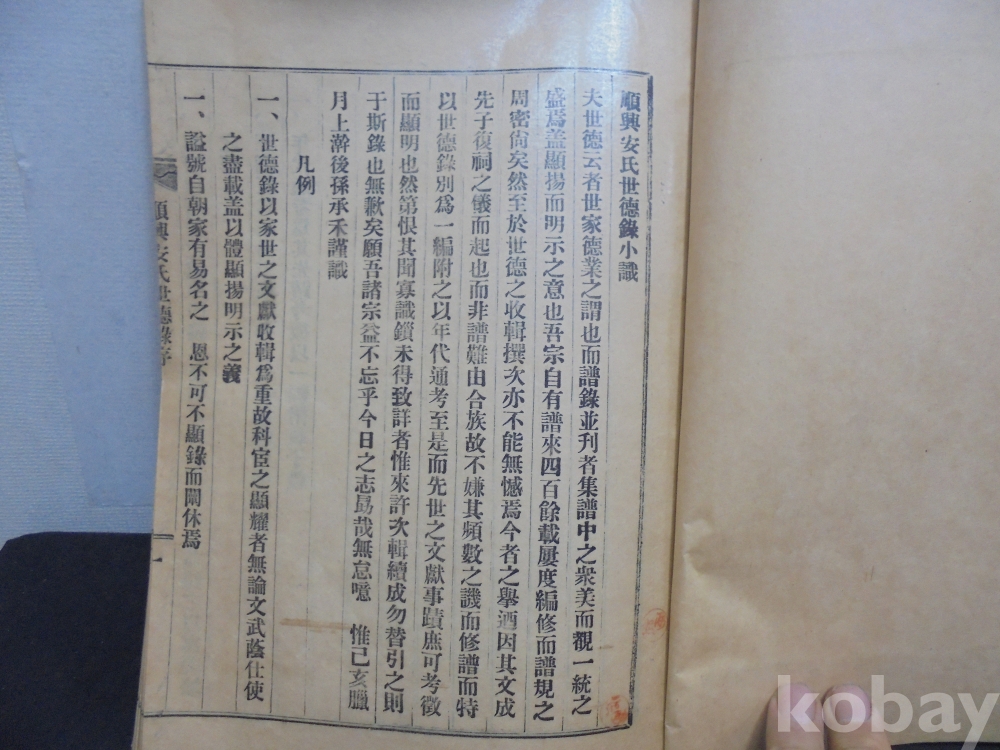 順興安氏世德錄小識
夫世德云者世家德業之謂也而譜錄並刊者集譜中之衆美而覩一統之
盛焉盖顯揚而明示之意也吾宗自有譜來四百餘載屢度編修而譜規之
周密尙矣然至於世德之收輯撰次亦不能無憾焉今者之擧迺因其文成
先子復祠之儀而起也而非譜難由合族故不嫌其頻數之譏而修譜而特
以世德錄別爲一編附之以年代通考至是而先世之文獻事蹟庶可考徵
而顯明也然第恨其聞寡識鎖未得致詳者惟來許次輯續成勿替引之則
于斯錄也無歉矣願吾諸宗益不忘乎今日之志勗哉無怠噫 惟己亥臘
月上澣後孫承禾謹識
凡例
一、世德錄以家世之文獻收輯爲重故科宦之顯耀者無論文武蔭仕使
之盡載盖以體顯揚明示之義
一、謚號自朝家有易名之 恩不可不顯錄而闡休焉
順興安氏世德錄序
一
kobay